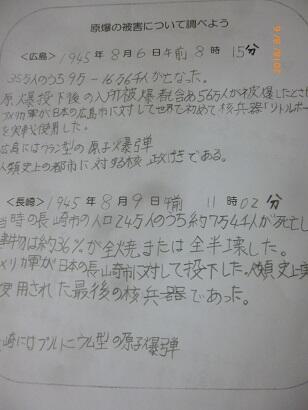 原爆の被害について調べよう
<広島> 1945年 8月 6日午前 8時 15分
35万人のうち9万-16万6千人が亡なった。
原爆投下後の入所被爆者含め56万人が被爆したとさ
メリカ軍が日本の広島市に対して世界で初めて核兵器「リトルボー
を実戦使用した。
広島にはウラン型の原子爆弾
人類史上の都市に対する核 である。
<長崎> 1945年 8月 9日午前 11時 02分
当時の長崎市の人口24万人のうち約7万4千人が死亡し
建物は約36%が全焼または全半壊した。
メリカ軍が日本の長崎市に対して投下した、人類史上実
使用された最後の核兵器であった。
崎にはプルトニウム型の原子爆弾
2018/8/9